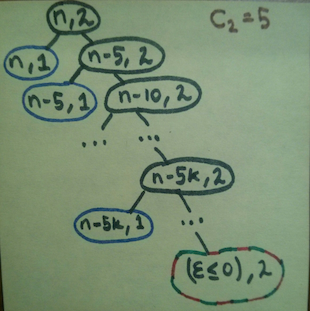 n, 2
C₂ = 5
n, 1
n-5, 2
n-5, 1
n-10, 2
... ...
n-5k, 2
n-5k, 1
...
(ε≤0), 2